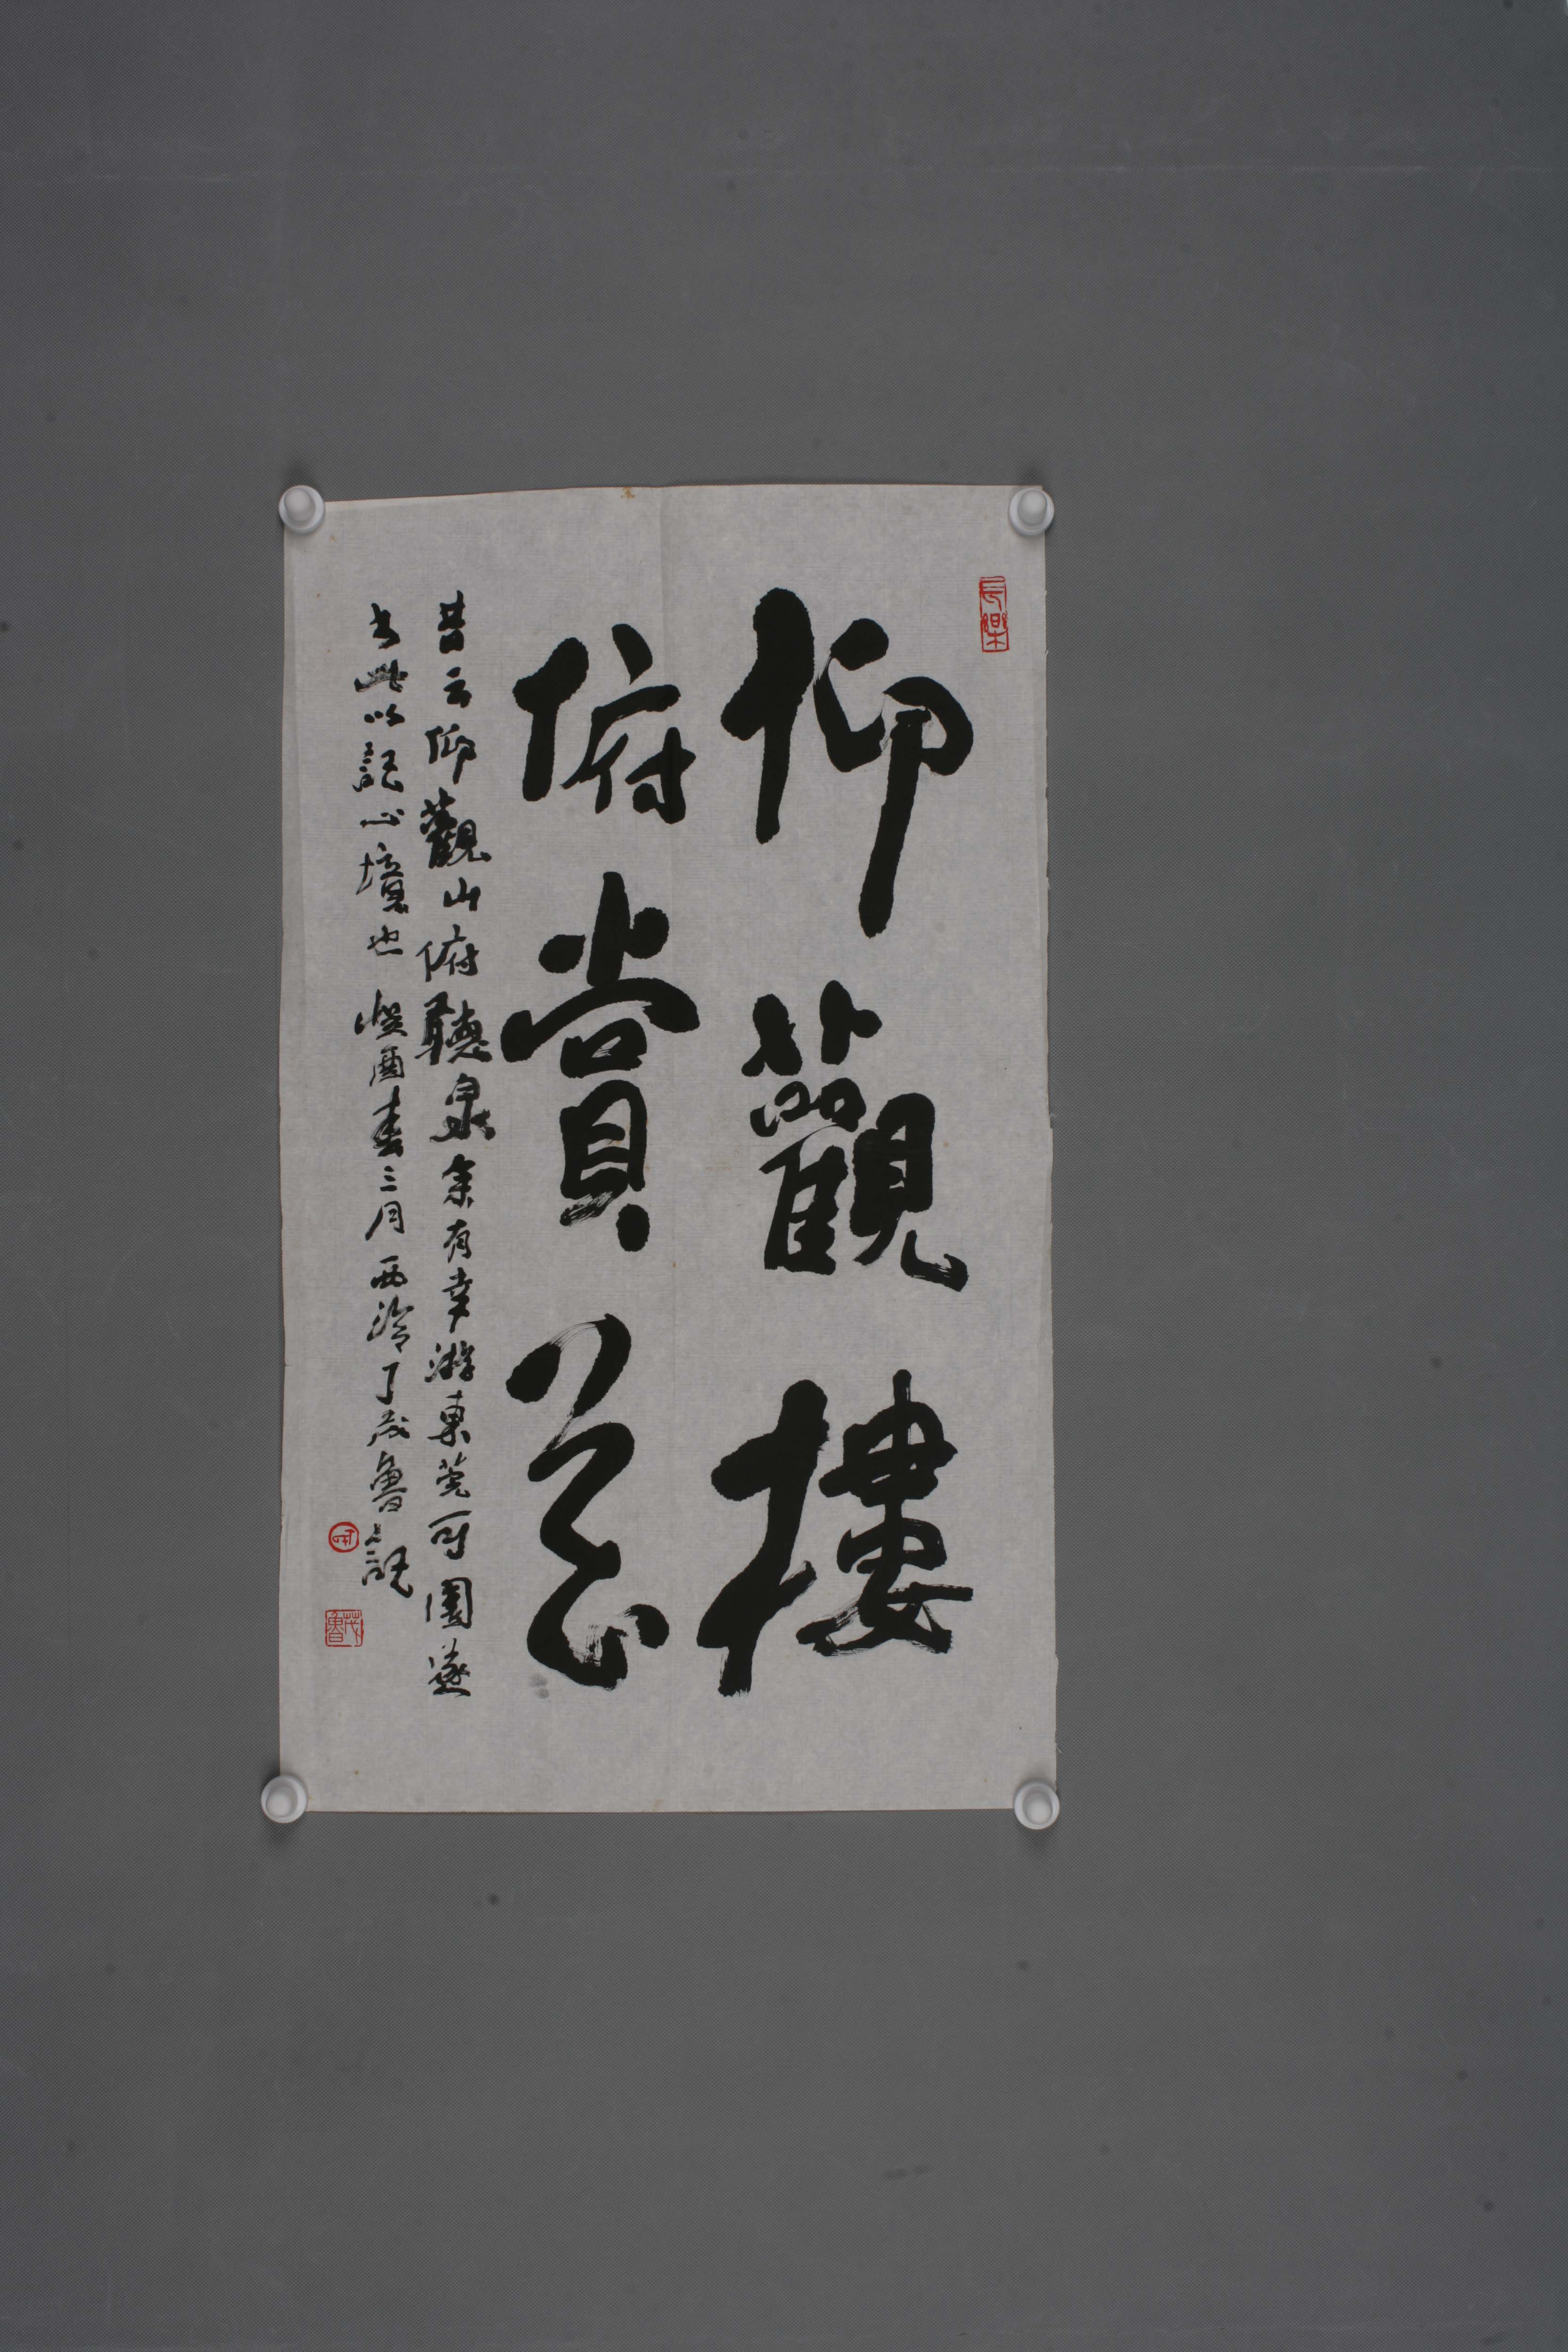 仰觀樓
俯賞花
昔云仰觀山俯聽泉余有幸游東莞可園遂
書此以記心境也 癸酉春三月西泠丁茂魯記
長樂
茂魯